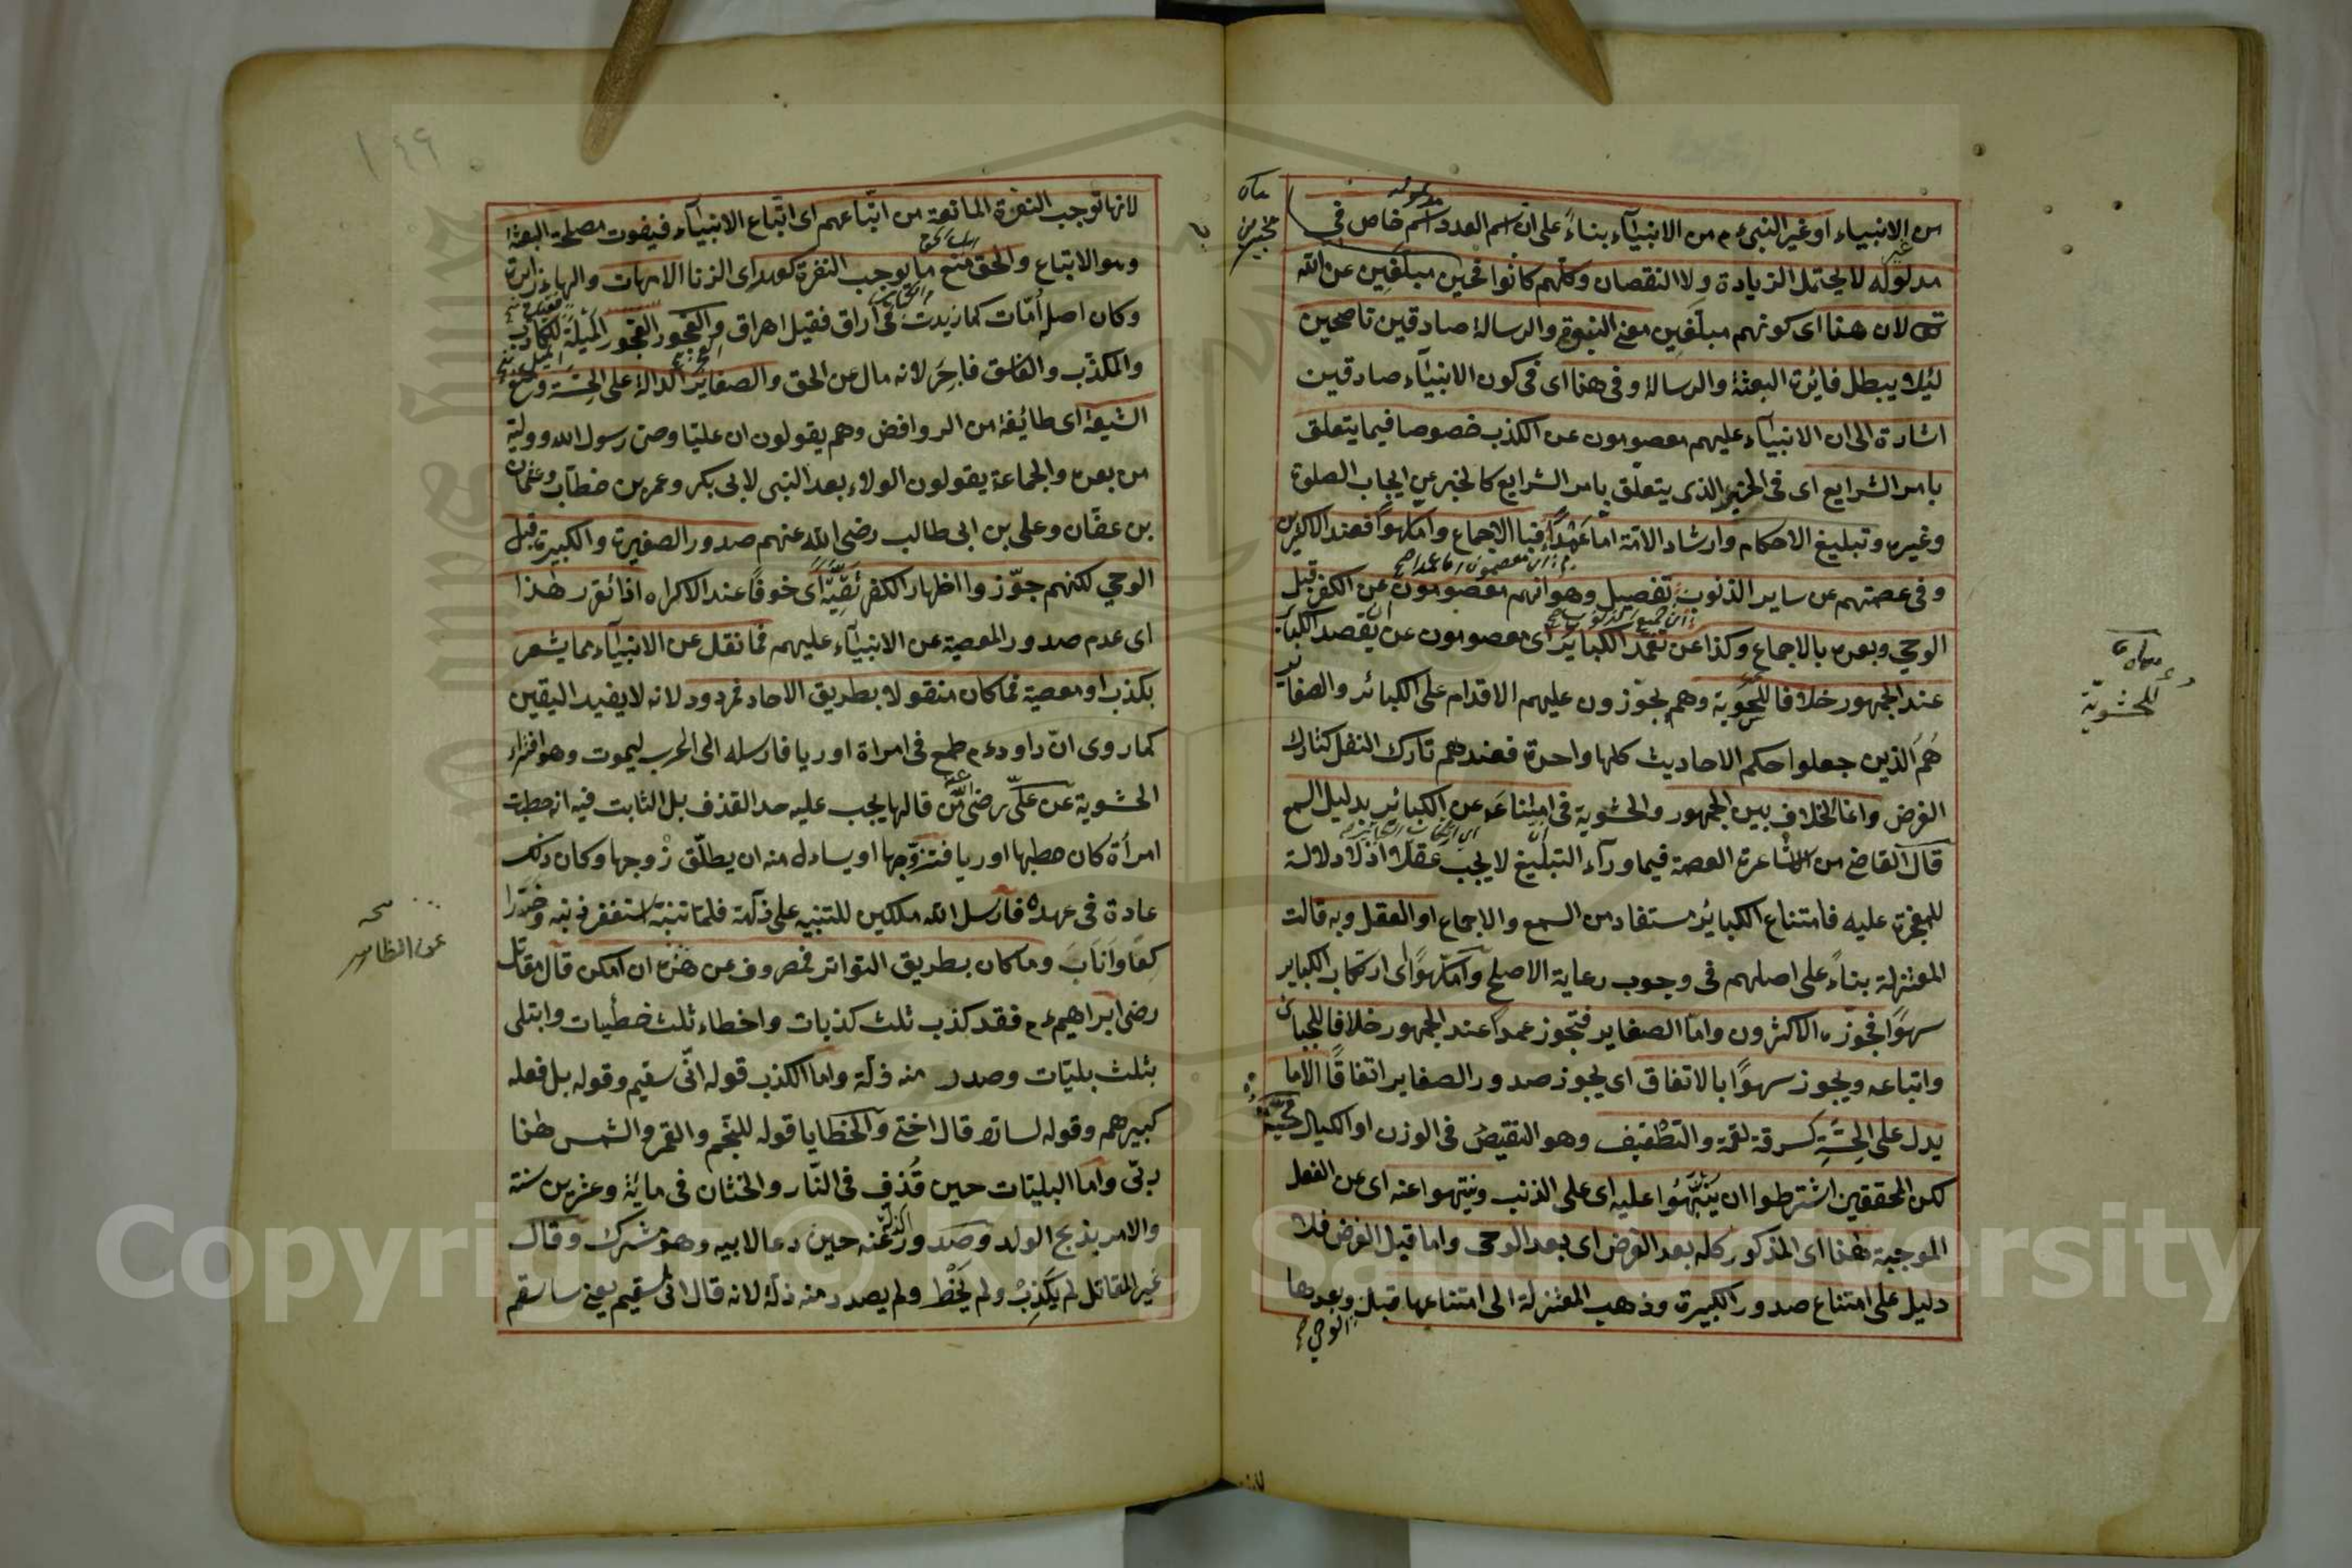 من الانبياء او غير النبى ءم من الانبيآء بناءً على ان اسم العدد اسم خاص فى
مدلوله لا يحتمل الزيادة ولا النقصان وكلهم كانوا مخبرين مبلغين عن الله
تعالى لان هذا اى كونهم مبلغين معنى النبوة والرسالة صادقين ناصحين
ليئلا يبطل فائدة البعثة والرسالة وفى هذا اى فى كون الانبيآء صادقين
اشارة الى ان الانبيآء عليهم معصومون عن الكذب خصوصا فيما يتعلق
بامر الشرايع اى فى الخبر الذى يتعلق بامر الشرايع كالخبر عن ايجاب الصلوة
وغيره وتبليغ الاحكام وارشاد الامة اما عمدًا فبا الاجماع واما سهوًا فعند الاكثرين
وفى عصمتهم عن ساير الذنوب تفصيل وهو انهم معصومون عن الكفر قبل
الوحي وبعده بالاجماع وكذا عن تعمد الكباير اى معصومون عن تقصد الكبائر
عند الجمهور خلافا للحشوية وهم يجوّزون عليهم الاقدام على الكبائر والصغاير
هم الذين جعلوا حكم الاحاديث كلها واحدة فعندهم تارك النفل كتارك
الفرض وانما الخلاف بين الجمهور والحشوية فى امتناعه عن الكبائر بدليل السمع
قال القاضى من الاشاعرة العصمة فيما ورآء التبليغ لا يجب عقلا اذ لا دلالة
للمعجزة عليه فامتناع الكبائر مستفاد من السمع والاجماع او العقل وبه قالت
المعتزلة بناءً على اصلهم فى وجوب رعاية الاصلح واما سهوًا اى ارتكاب الكباير
سهوًا فجوّزه الاكثرون واما الصغاير فتجوز عمدا عند الجمهور خلافا للجبائى
واتباعه ويجوز سهوًا بالاتفاق اى يجوز صدور الصغاير اتفاقًا الا ما
يدل على الخسّة كسرقة لقمة والتطفيف وهو التنقيص فى الوزن او الكيال بحبّة
لكن المحققين اشترطوا ان ينبّهوا عليه اى على الذنب وينتهوا عنه اى عن الفعل
الموجبة هذا اى المذكور كله بعد الفرض اى بعد الوحى واما قبل الفرض فلا
دليل على امتناع صدور الكبيرة وذهب المعتزلة الى امتناعها قبل الوحى وبعدها
للحشوية
١٤٩
لانها توجب النفرة المانعة من اتباعهم اى اتباع الانبيآء فيفوت مصلحة البعثة
وهو الاتباع والحق منع ما يوجب النفرة كعهر اى الزنا الامهات والهاء زايدة
وكان اصل أمّات كما زيدت فى اراق فقيل اهراق والفجور الفجور الميل للكاذب
والمكذّب والفاسق فاجر لانه مال عن الحق والصغاير الدالة على الخسّة ومنع
الشيعة اى طائفة من الروافض وهم يقولون ان عليّا وصىّ رسول الله ووليه
من بعده والجماعة يقولون الولاء بعد النبى لابى بكر وعمر بن خطاب وعثمان
بن عفّان وعلى بن ابى طالب رضى الله عنهم صدور الصغيرة والكبيرة قبل
الوحي لكنهم جوّزوا اظهار الكفر تقيّة اى خوفًا عند الاكراه اذا تقرر هذا
اى عدم صدور المعصية عن الانبيآء عليهم فما نقل عن الانبيآء مما يشعر
بكذب او معصية فما كان منقولا بطريق الاحاد فمردود لانه لا يفيد اليقين
كما روى انّ داودءم طمع فى امراة اوريا فارسله الى الحرب ليموت وهو افتراء
الحشوية عن علىّ رضى انّ من قالها يجب عليه حد القذف بل الثابت فيه انه خطبت
امرأة كان خطبها اوريا فتزوّجها او يساءل منه ان يطلّق زوجها وكان ذلك
عادة فى عهده فارسل الله ملكين للتنبيه على زلّة فلما تنبّه استغفر ذنبه وخرّ را
كعًا وأناب وما كان بطريق التواتر فمصروف عن ظاهره ان امكن قال مقاتل
رضى ابراهيم ءم فقد كذب ثلث كذبات واخطاء ثلث خطيات وابتلى
بثلث بليّات وصدر منه زلة واما الكذب قوله انّى سقيم وقوله بل فعله
كبيرهم وقوله لسارة قال اختى والخطايا قوله للنجم والقمر والشمس هذا
ربى واما البليّات حين قُذف فى النّار والختان فى مائة وعشرين سنة
والامر بذبح الولد وصدور الزلة عنه حين دعا لابيه وهو مشرك وقال
غير المقاتل لم يكذب ولم يخط ولم يصدر منه زلة لانه قال انى سقيم يعنى ساسقم
عن الظاهر
Copyright © King Saud University